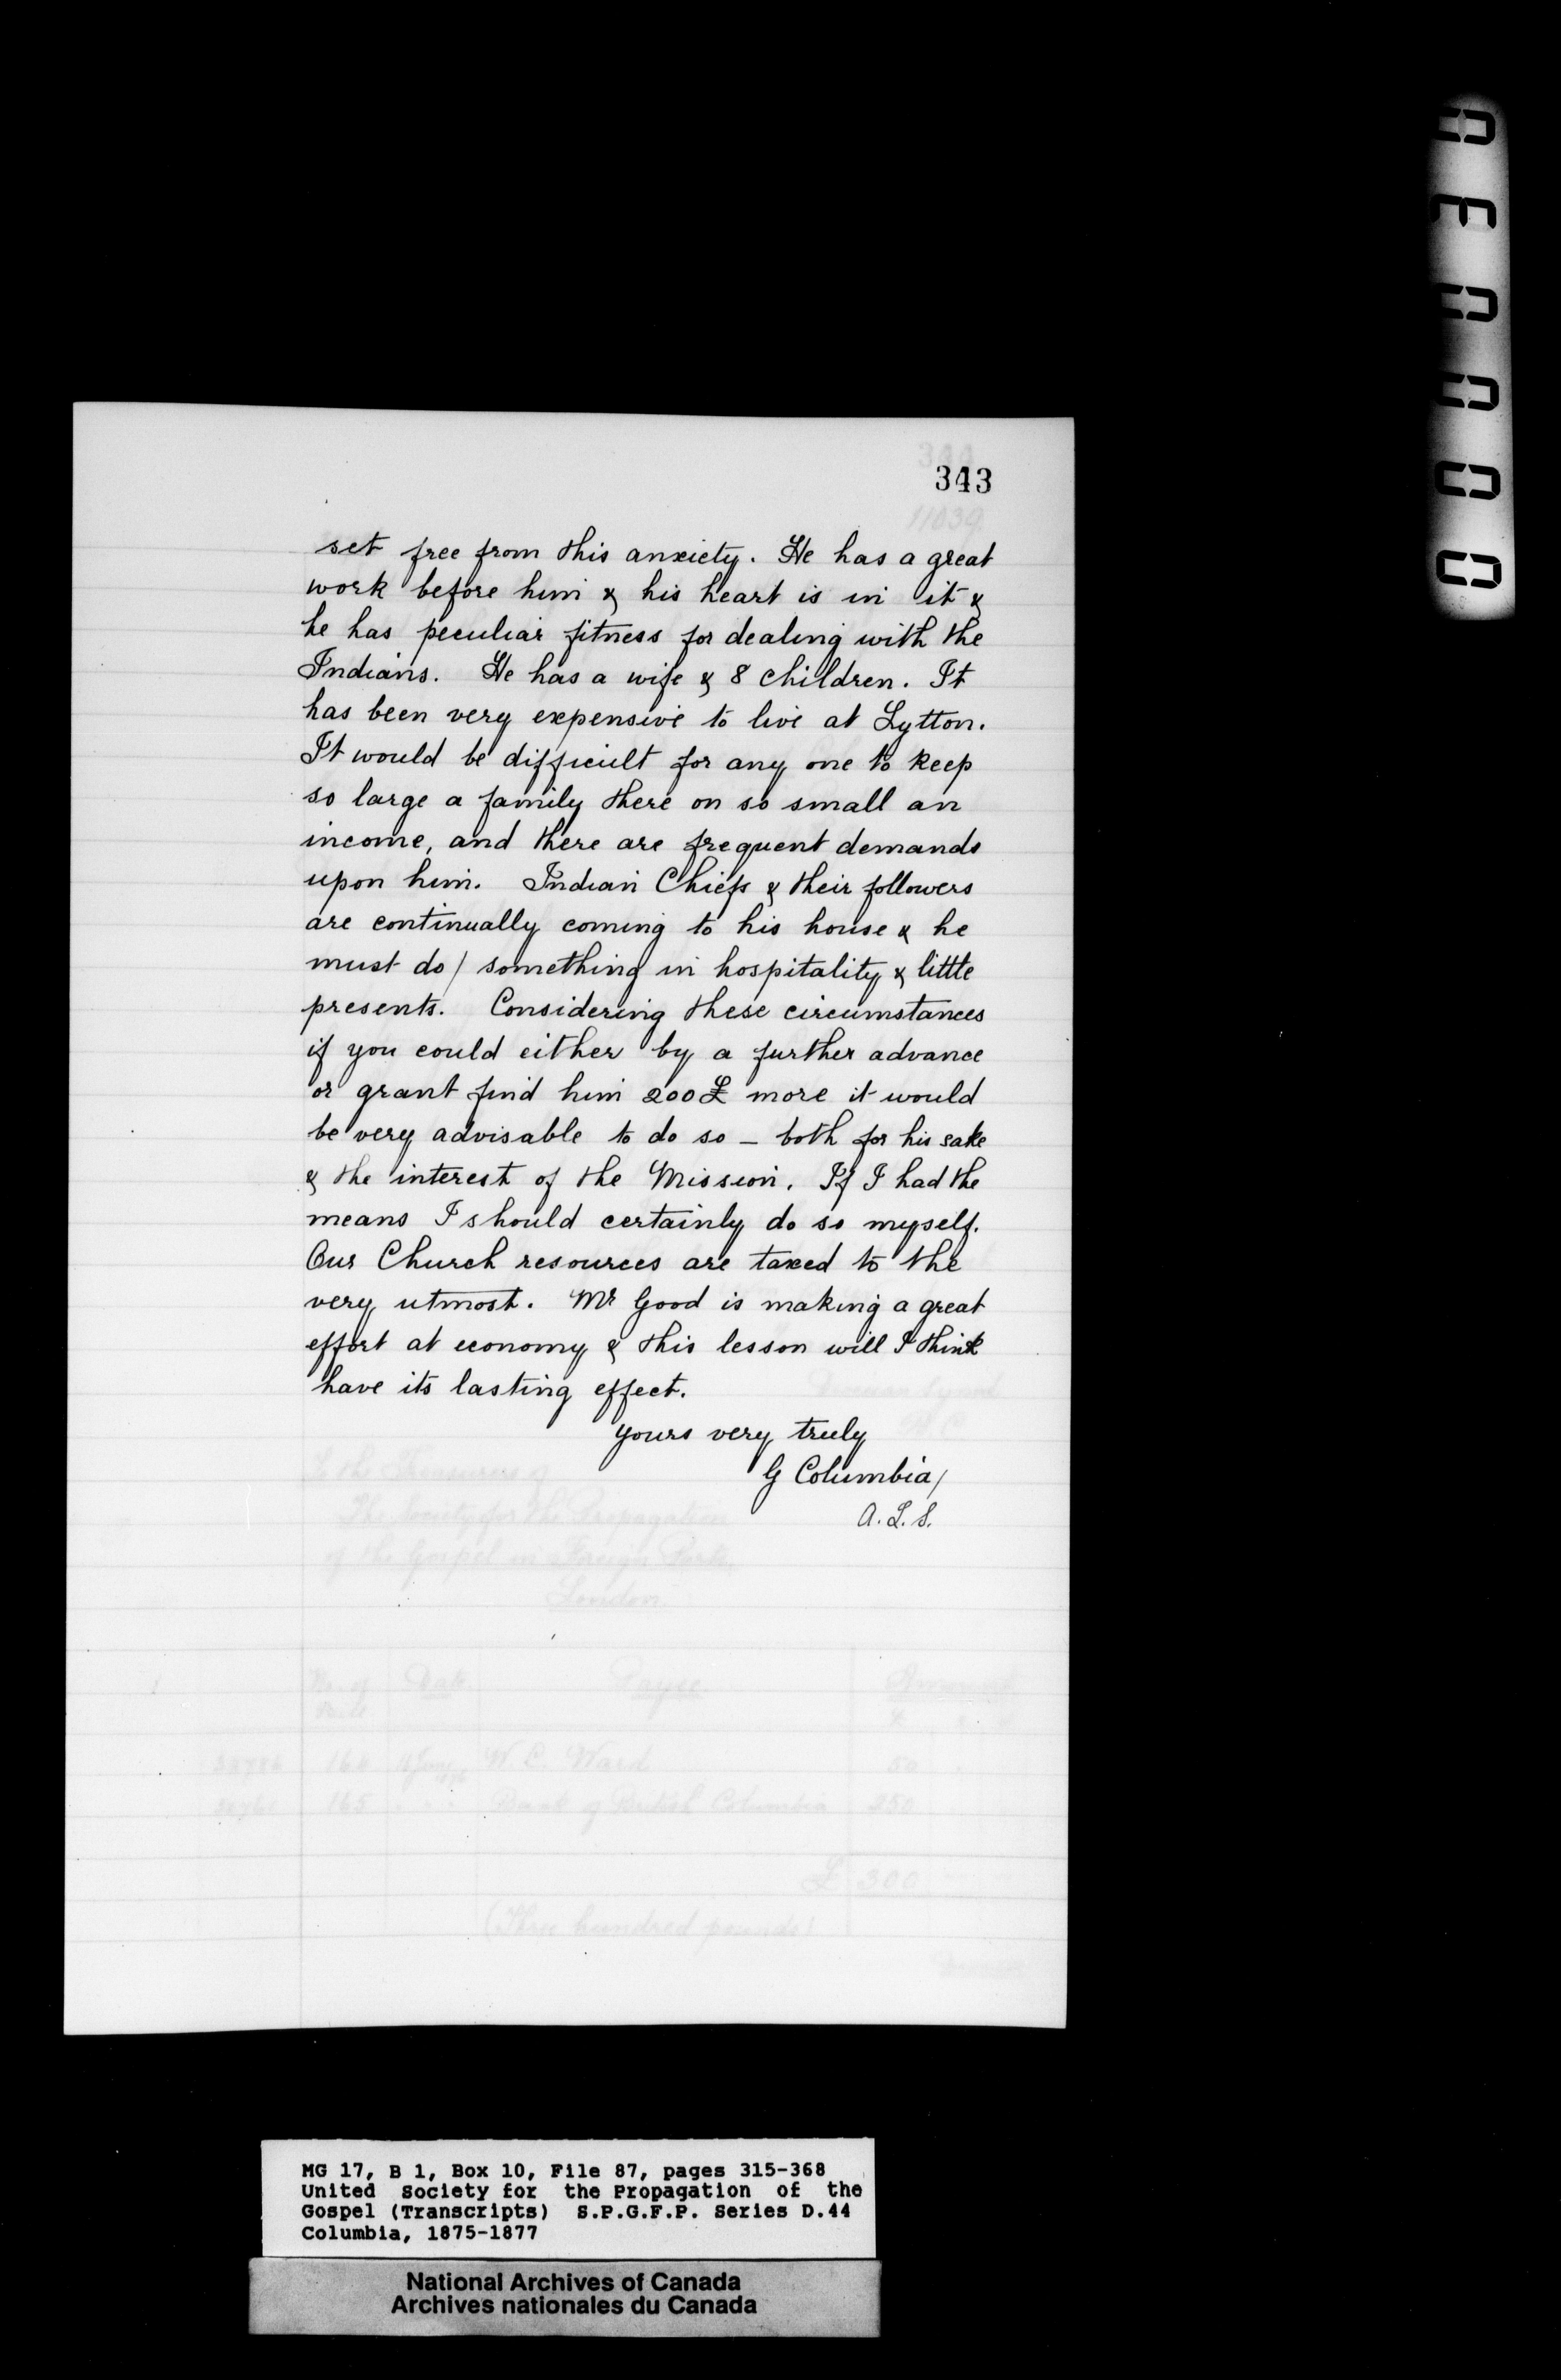 343
set free from this anxiety. He has a great
work before him & his heart is in it &
he has peculiar fitness for dealing with the
Indians. He has a wife & 8 children. It
has been very expensive to live at Lytton.
It would be difficult for any one to keep
so large a family there on so small an
income, and there are frequent demands
upon him. Indian Chiefs & their followers
are continually coming to his house & he
must do / something in hospitality & little
presents. Considering these circumstances
if you could either by a further advance
or grant find him 200£ more it would
be very advisable to do so – both for his sake
& the interest of the Mission. If I had the
means I should certainly do so myself.
Our Church resources are taxed to the
very utmost. Mr Good is making a great
effort at economy & this lesson will I think
have its lasting effect.
Yours very truly
G Columbia /
A. L. S.
To the Treasurers of
The Society for the Propagation
of the Gospel in Foreign Parts,
London
No. of Date Payee Amount
W. C. Ward 50
165 Bank of British Columbia 250
£ 300
(Three hundred pounds)
MG 17, B 1, Box 10, File 87, pages 315-368
United Society for the Propagation of the
Gospel (Transcripts) S.P.G.F.P. Series D.44
Columbia, 1875-1877
National Archives of Canada
Archives nationales du Canada